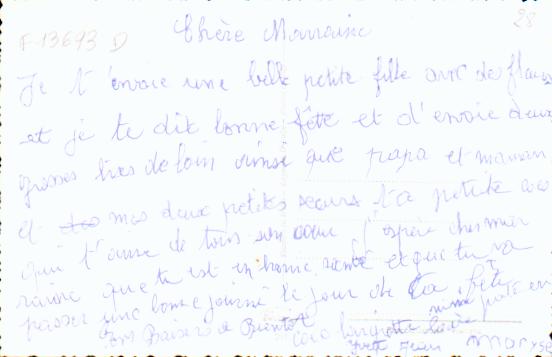 28
F-13693 D
Chère Marraine
Je t'envoie une belle petite fille avec de fleurs
et je te dit bonne fête et d'envoie deux
grosses bises de loin ainsi que papa et maman
et mes deux petites seurs ta petite coco
qui t'aime de tous son cœur j'espère cher mar
raine que tu est en bonne santé et que tu va
passer une bonne journé le jour de ta fête
Bon Baisers a Bientôt
coco